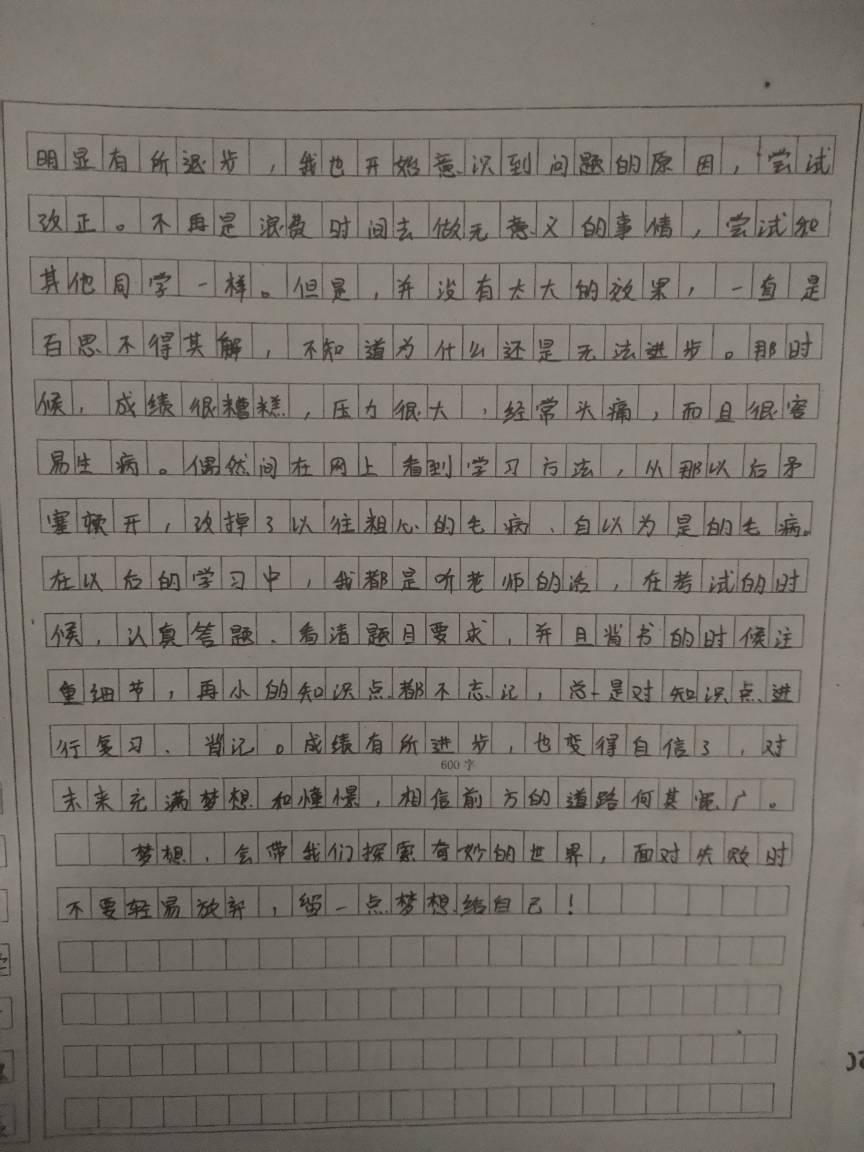 明显有所退步，我也开始意识到问题的原因，尝试
改正。不再是浪费时间去做无意义的事情，尝试和
其他同学一样。但是，并没有太大的效果，一直是
百思不得其解，不知道为什么还是无法进步。那时
候，成绩很糟糕，压力很大，经常头痛，而且很容
易生病。偶然间在网上看到学习方法，从那以后矛
塞顿开，改掉了以往粗心的毛病、自以为是的毛病。
在以后的学习中，我都是听老师的话，在考试的时
候，认真答题、看清题目要求，并且背书的时候注
重细节，再小的知识点都不忘记，总是对知识点进
行复习、背记。成绩有所进步，也变得自信了，对
600字
未来充满梦想和憧憬，相信前方的道路何其宽广。
梦想，会带我们探索奇妙的世界，面对失败时
不要轻易放弃，留一点梦想给自己！